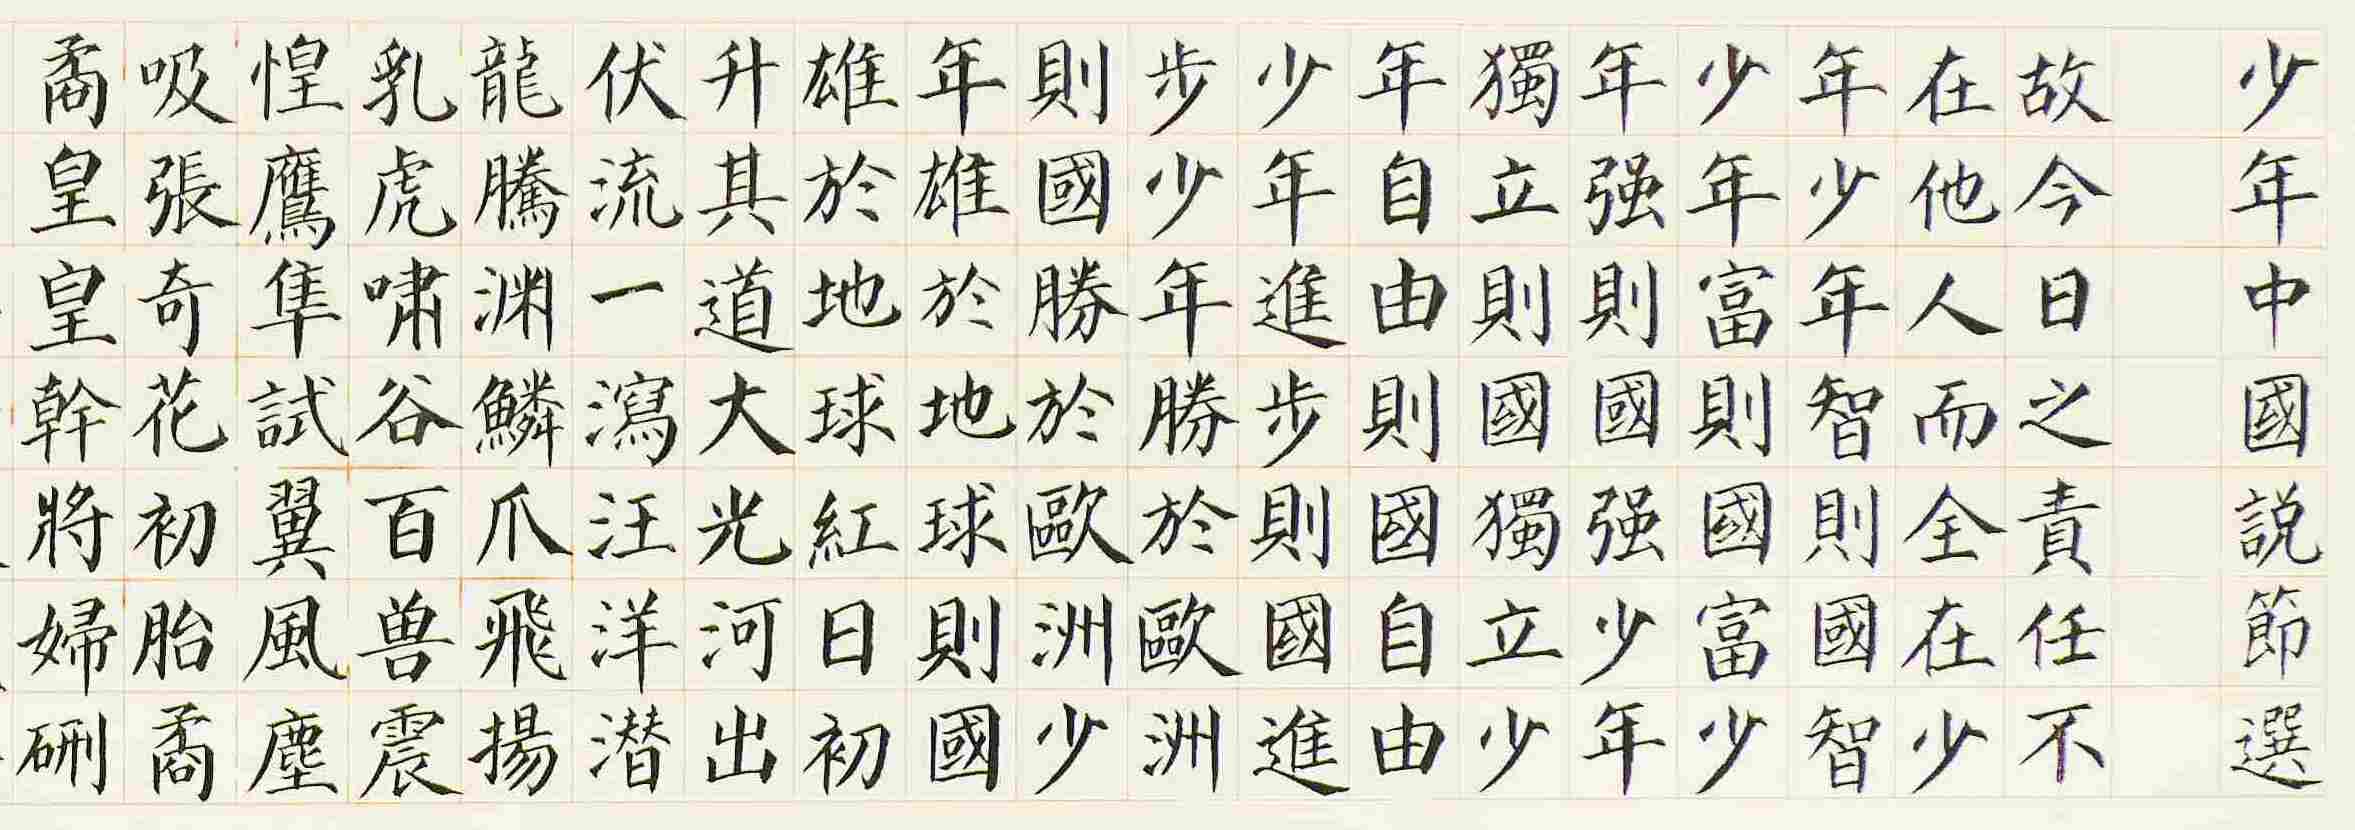 少年中國説節選
故今日之責任不
在他人而全在少
年少年智則國智
少年富則國富少
年强則國强少年
獨立則國獨立少
年自由則國自由
少年進步則國進
步少年勝於歐洲
則國勝於歐洲少
年雄於地球則國
雄於地球紅日初
升其道大光河出
伏流一瀉汪洋潜
龍騰渊鱗爪飛揚
乳虎啸谷百兽震
惶鷹隼試翼風塵
吸張奇花初胎矞
矞皇皇幹將婦硎